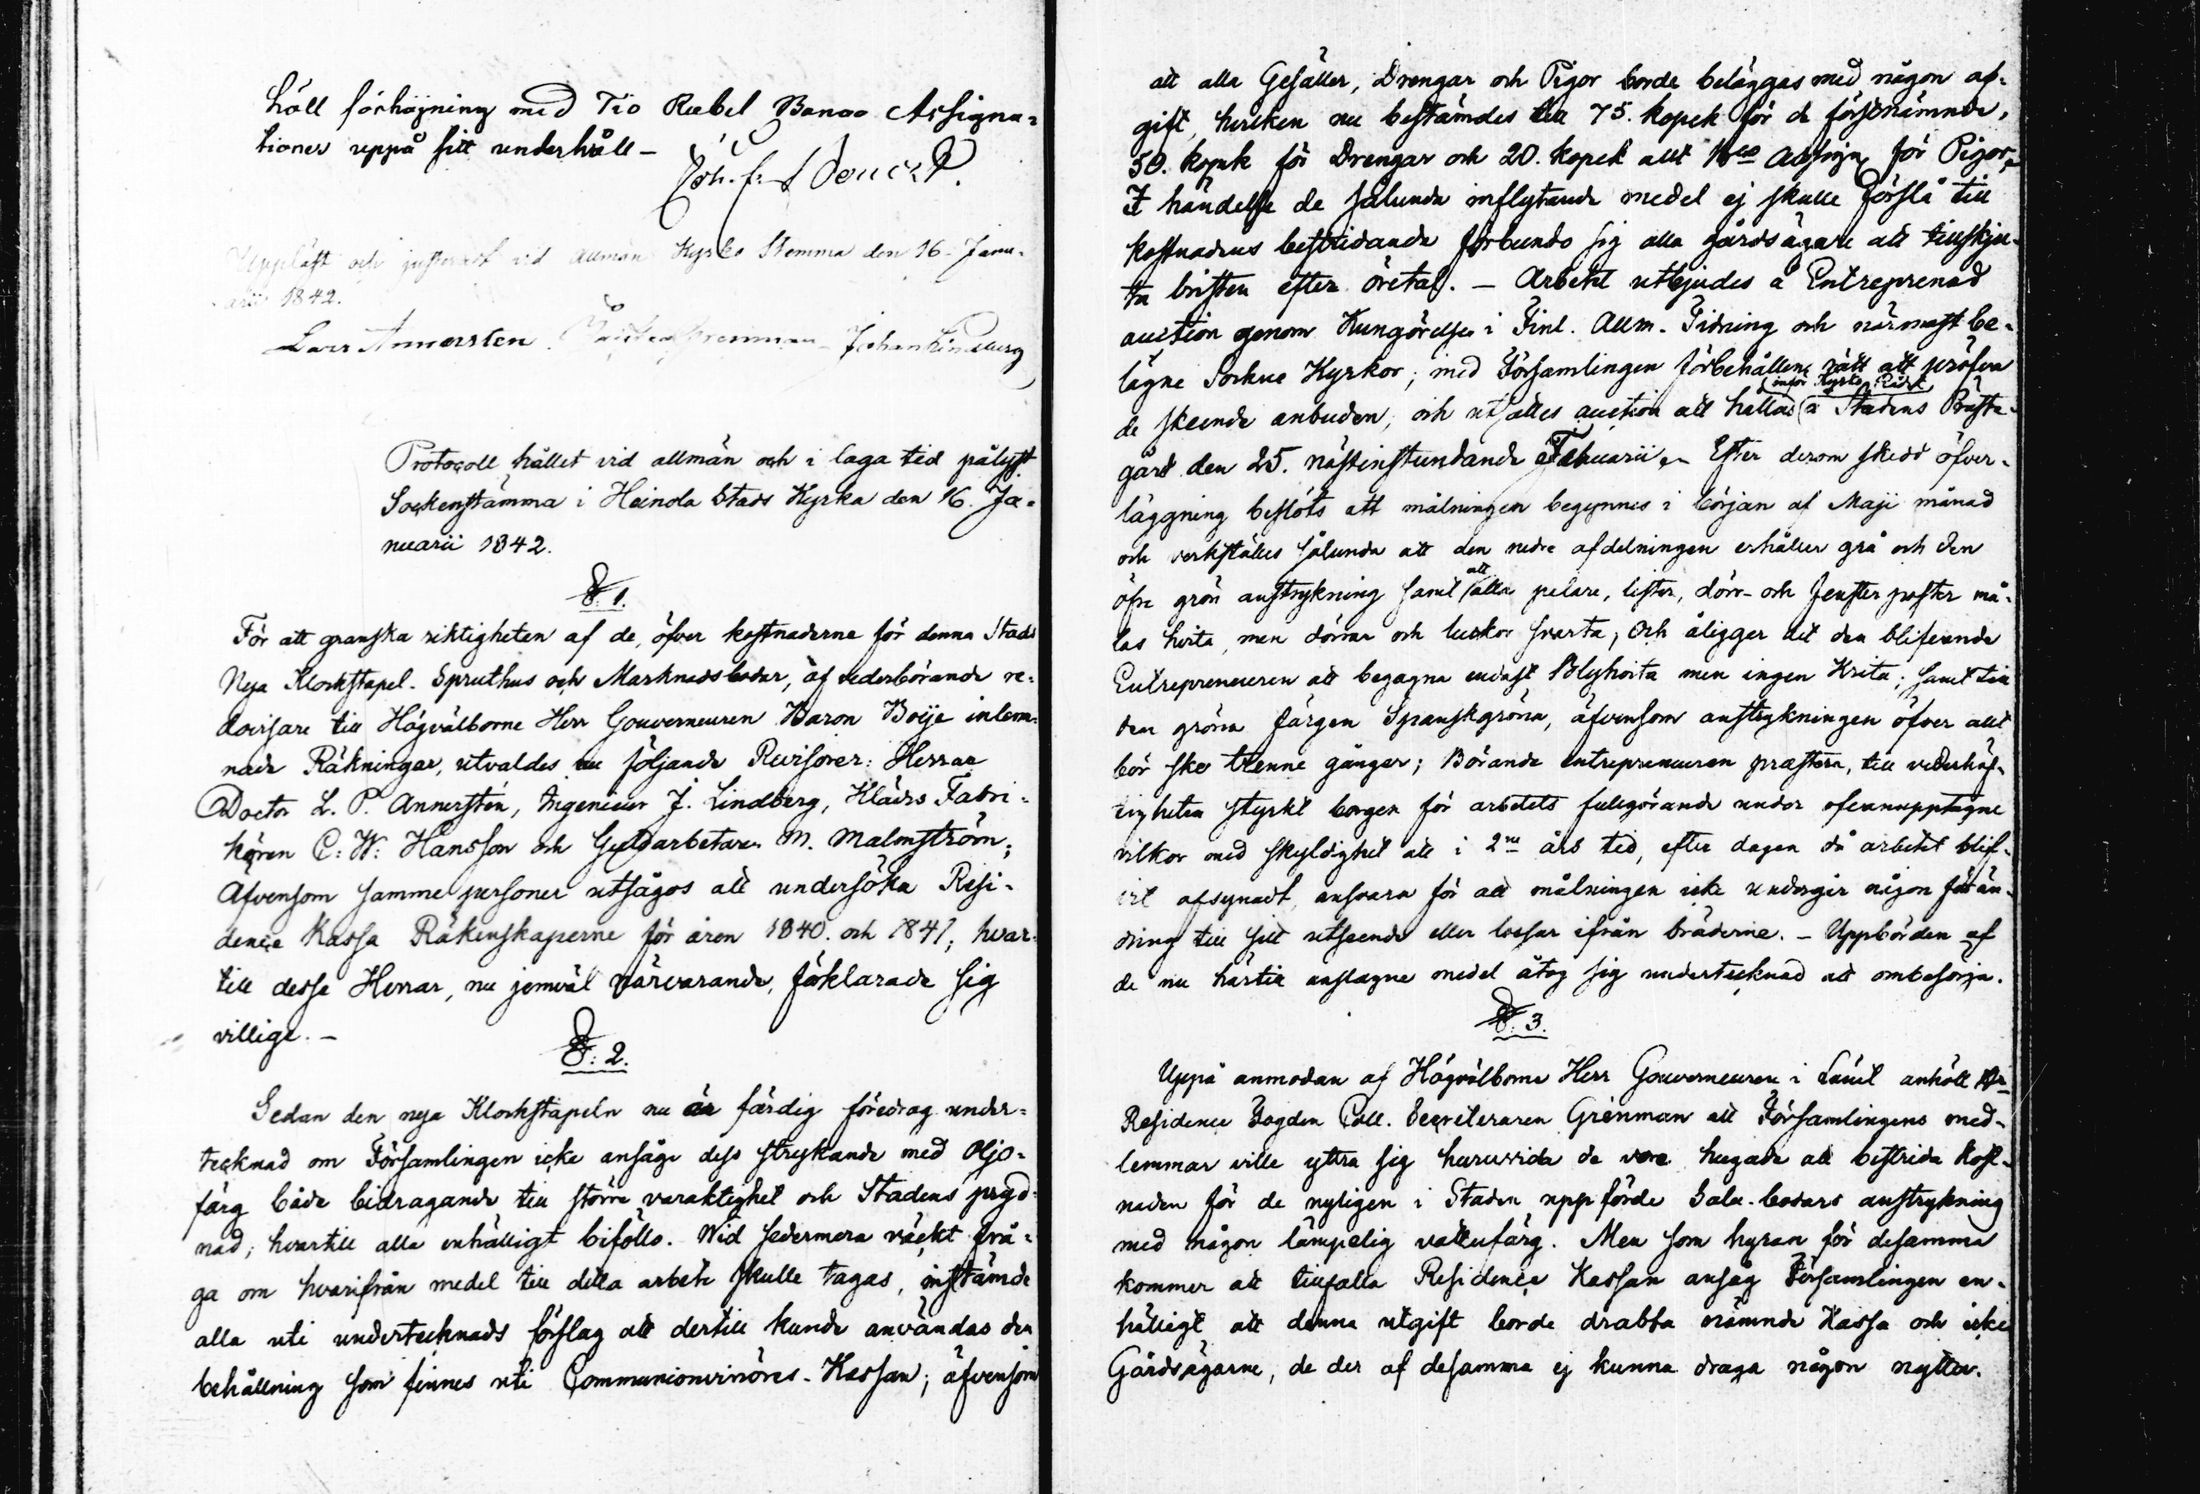 höll förhöjning med Tio Rubel Banco Assigna-
tioner uppå sitt underhåll –
Joh. f:
Uppläst och justeradt vid allmän Kyrko Stemma den 16. Janu-
arii 1842.
Lars Annersten. Grenman – Johan Lindberg
Protocoll hållet vid allmän och i laga tid pålyst
Sockenstämma i Heinola Stads Kyrka den 16. Ja-
nuarii 1842.
§: 1.
För att granska riktigheten af de, öfver kostnaderne för denna Stads
Nya Klockstapel. Spruthus och Marknadsbodar, af vederbörande re-
dovisare till Högvälborne Herr Gouverneuren Baron Boije inlem-
nade Räkningar, utvaldes nu följande Revisorer: Herrar
Doctor L. P. Annerstén, Ingenieur J. Lindberg, Klädes Fabri-
kören C: W: Hansson och Guldarbetaren M. Malmström;
Äfvensom samme personer utsågos att undersöka Resi-
dence Kassa Räkenskaperne för åren 1840. och 1841, hvar-
till desse Herrar, nu jemväl närvarande, föklarade sig
villige. –
§: 2.
Sedan den nya Klockstapeln nu är färdig föredrog under-
tecknad om Församlingen icke ansåge dess strykande med Oljo-
färg både bidragande till större varaktighet och Stadens pryd-
nad; hvartill alla enhälligt biföllo. Wid sedermera väckt frå-
ga om hvarifrån medel till detta arbete skulle tagas, instämde
alla uti undertecknads förslag att dertill kunde användas den
behållning som finnes uti Communionvinöres-Kassan; äfvensom
att alla Gesäller, Drengar och Pigor borde beläggas med någon af-
gift, hvilken nu bestämdes till 75. kopek för de förstnämnde,
50. kopek för Drengar och 20. kopek allt B:co Assign. för Pigor.
I händelse de sålunda inflytande medel ej skulle förslå till
kostnadens bestridande förbundo sig alla gårdsägare att tillskju-
ta bristen efter öretal. – Arbetet utbjudes å Entreprenad
auction genom Kungörelse i Finl. Allm. Tidning och närmast be-
lägne Sockne Kyrkor; med Församlingen förbehållen rätt att pröfva
inför Kyrko Rådet
de skeende anbuden; och utsattes auction att hållas å Stadens Prästa-
gård den 25. nästinstundande Februarii. – Efter derom skedd öfver-
läggning beslöts att målningen begynnes i början af Maji månad
och verkställes sålunda att den nedre afdelningen erhåller grå och den
att
öfre grön anstrykning samt alla pelare, lister, dörr- och fenster poster må-
las hvita, men dörrar och luckor svarta; Och åligger det den blifvande
Entrepreneuren att begagna endast Blyhvita men ingen Krita; samt till
den gröna färgen Spanskgröna, äfvensom anstrykningen öfver allt
bör ske trenne gånger; Börande entrepreneuren præstera, till vederhäf-
tigheten styrkt borgen för arbetets fullgörande under ofvanupptagne
vilkor med skyldighet att i 2ne års tid, efter dagen då arbetet blif-
vit afsynadt, ansvara för att målningen icke undergår någon förän-
dring till sitt utseende eller lossar ifrån bräderne. – Uppbörden af
de nu härtill anslagne medel åtog sig undertecknad att ombesörja.
§: 3.
Uppå anmodan af Högvälborne Herr Gouverneuren i Länet anhöll Hr
Residence Fogden Coll. Secreteraren Grénman att Församlingens med-
lemmar ville yttra sig huruvida de vore hugade att bestrida kost-
naden för de nyligen i Staden uppförde Salu-bodars anstrykning
med någon lämpelig vattufärg. Men som hyran för desamma
kommer att tillfalla Residence Kassan ansåg Församlingen en-
hälligt att denna utgift borde drabba nämnde Kassa och icke
Gårdsägarne, de der af desamma ej kunna draga någon nytta.